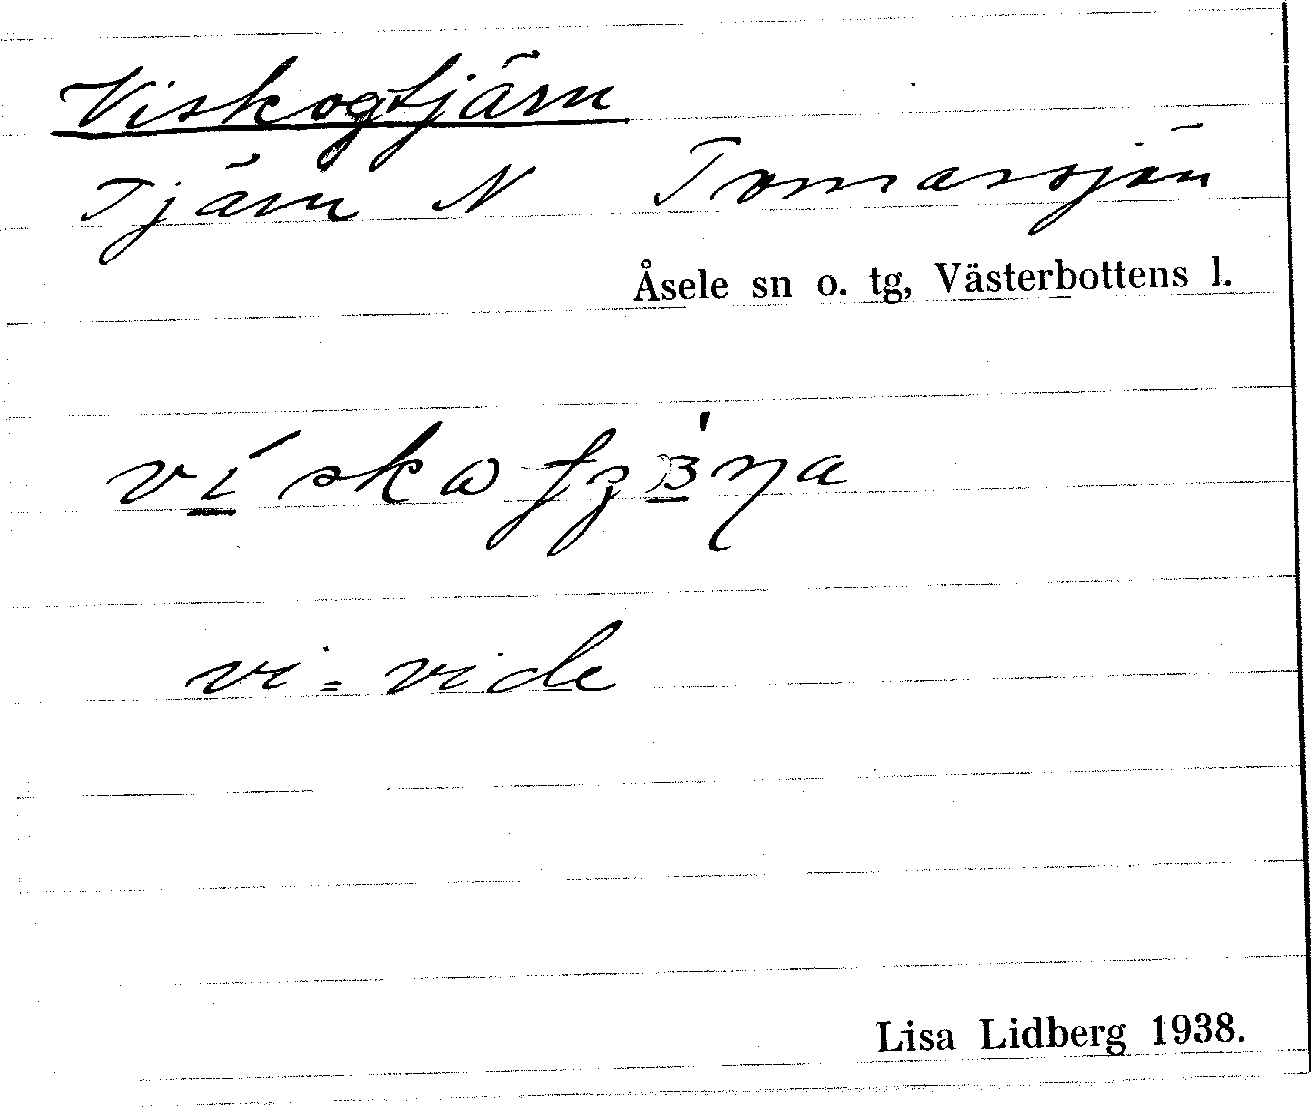 Viskogtjärn
Tjärn N Tomassjön
Åsele sn o. tg, Västerbottens l.
vi = vide
Lisa Lidberg 1938.